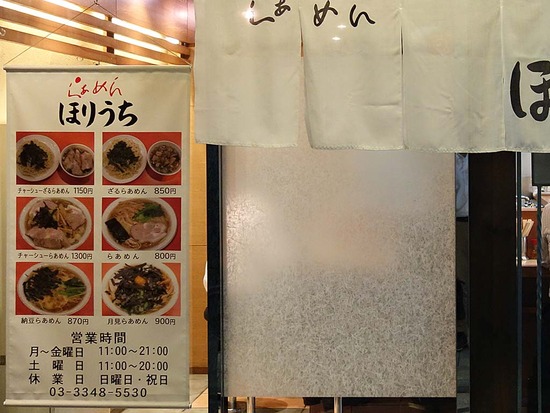 らぁめん
ほりうち
チャーシューざるらあめん 1150円
ざるらあめん 850円
チャーシューらあめん 1300円
らあめん 800円
納豆らあめん 870円
月見らあめん 900円
営業時間
月～金曜日 11:00～21:00
土曜日 11:00～20:00
休業日 日曜日・祝日
03-3348-5530
らぁめん
ほ